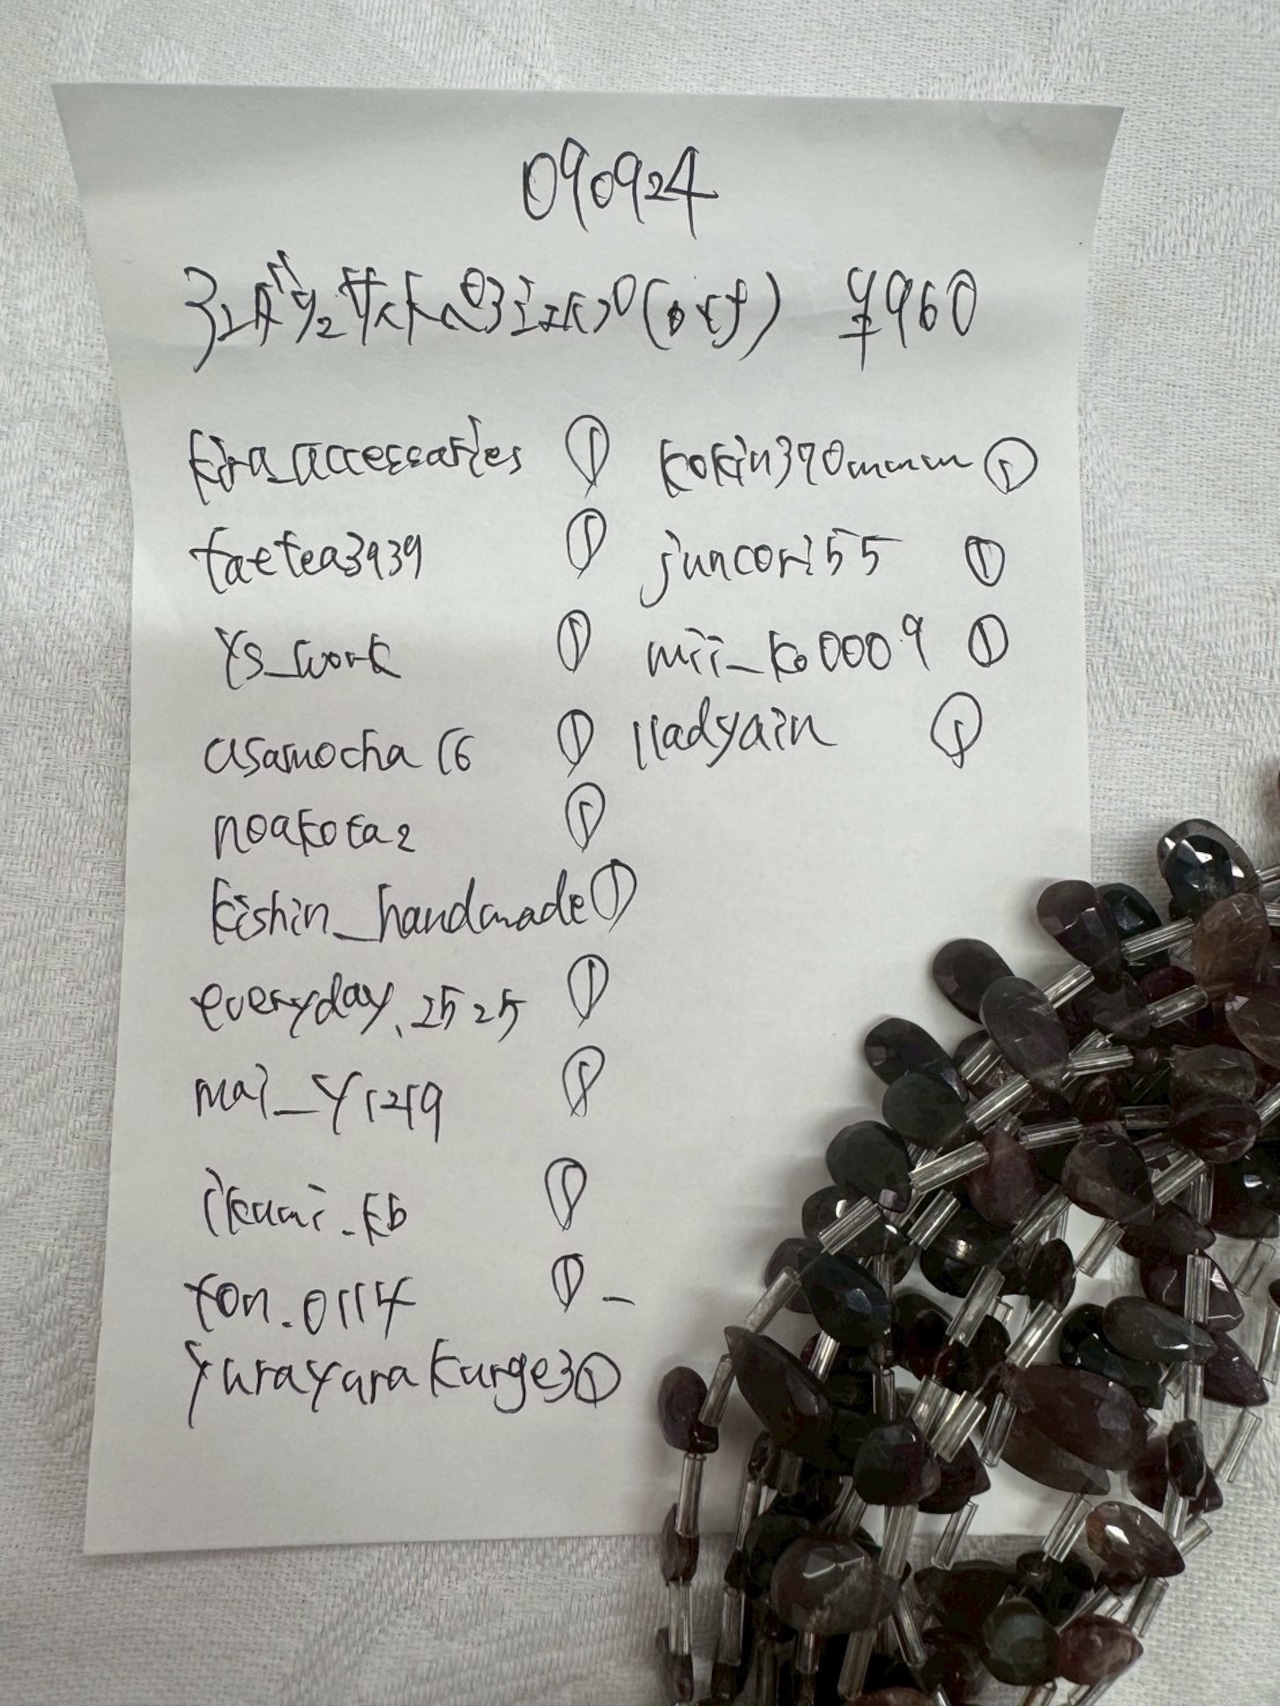 090924
¥960
kira_accessaries ①
taetea3939 ①
ys_work ①
asamocha16 ①
noakota2 ①
kishin_handmade ①
everyday.2525 ①
mai_y1219 ①
ikumi.kb ①
ton.0114 ①
yurayurakurge3 ①
kokin390mmm ①
juncori55 ①
mii_ko0009 ①
lladyain ①